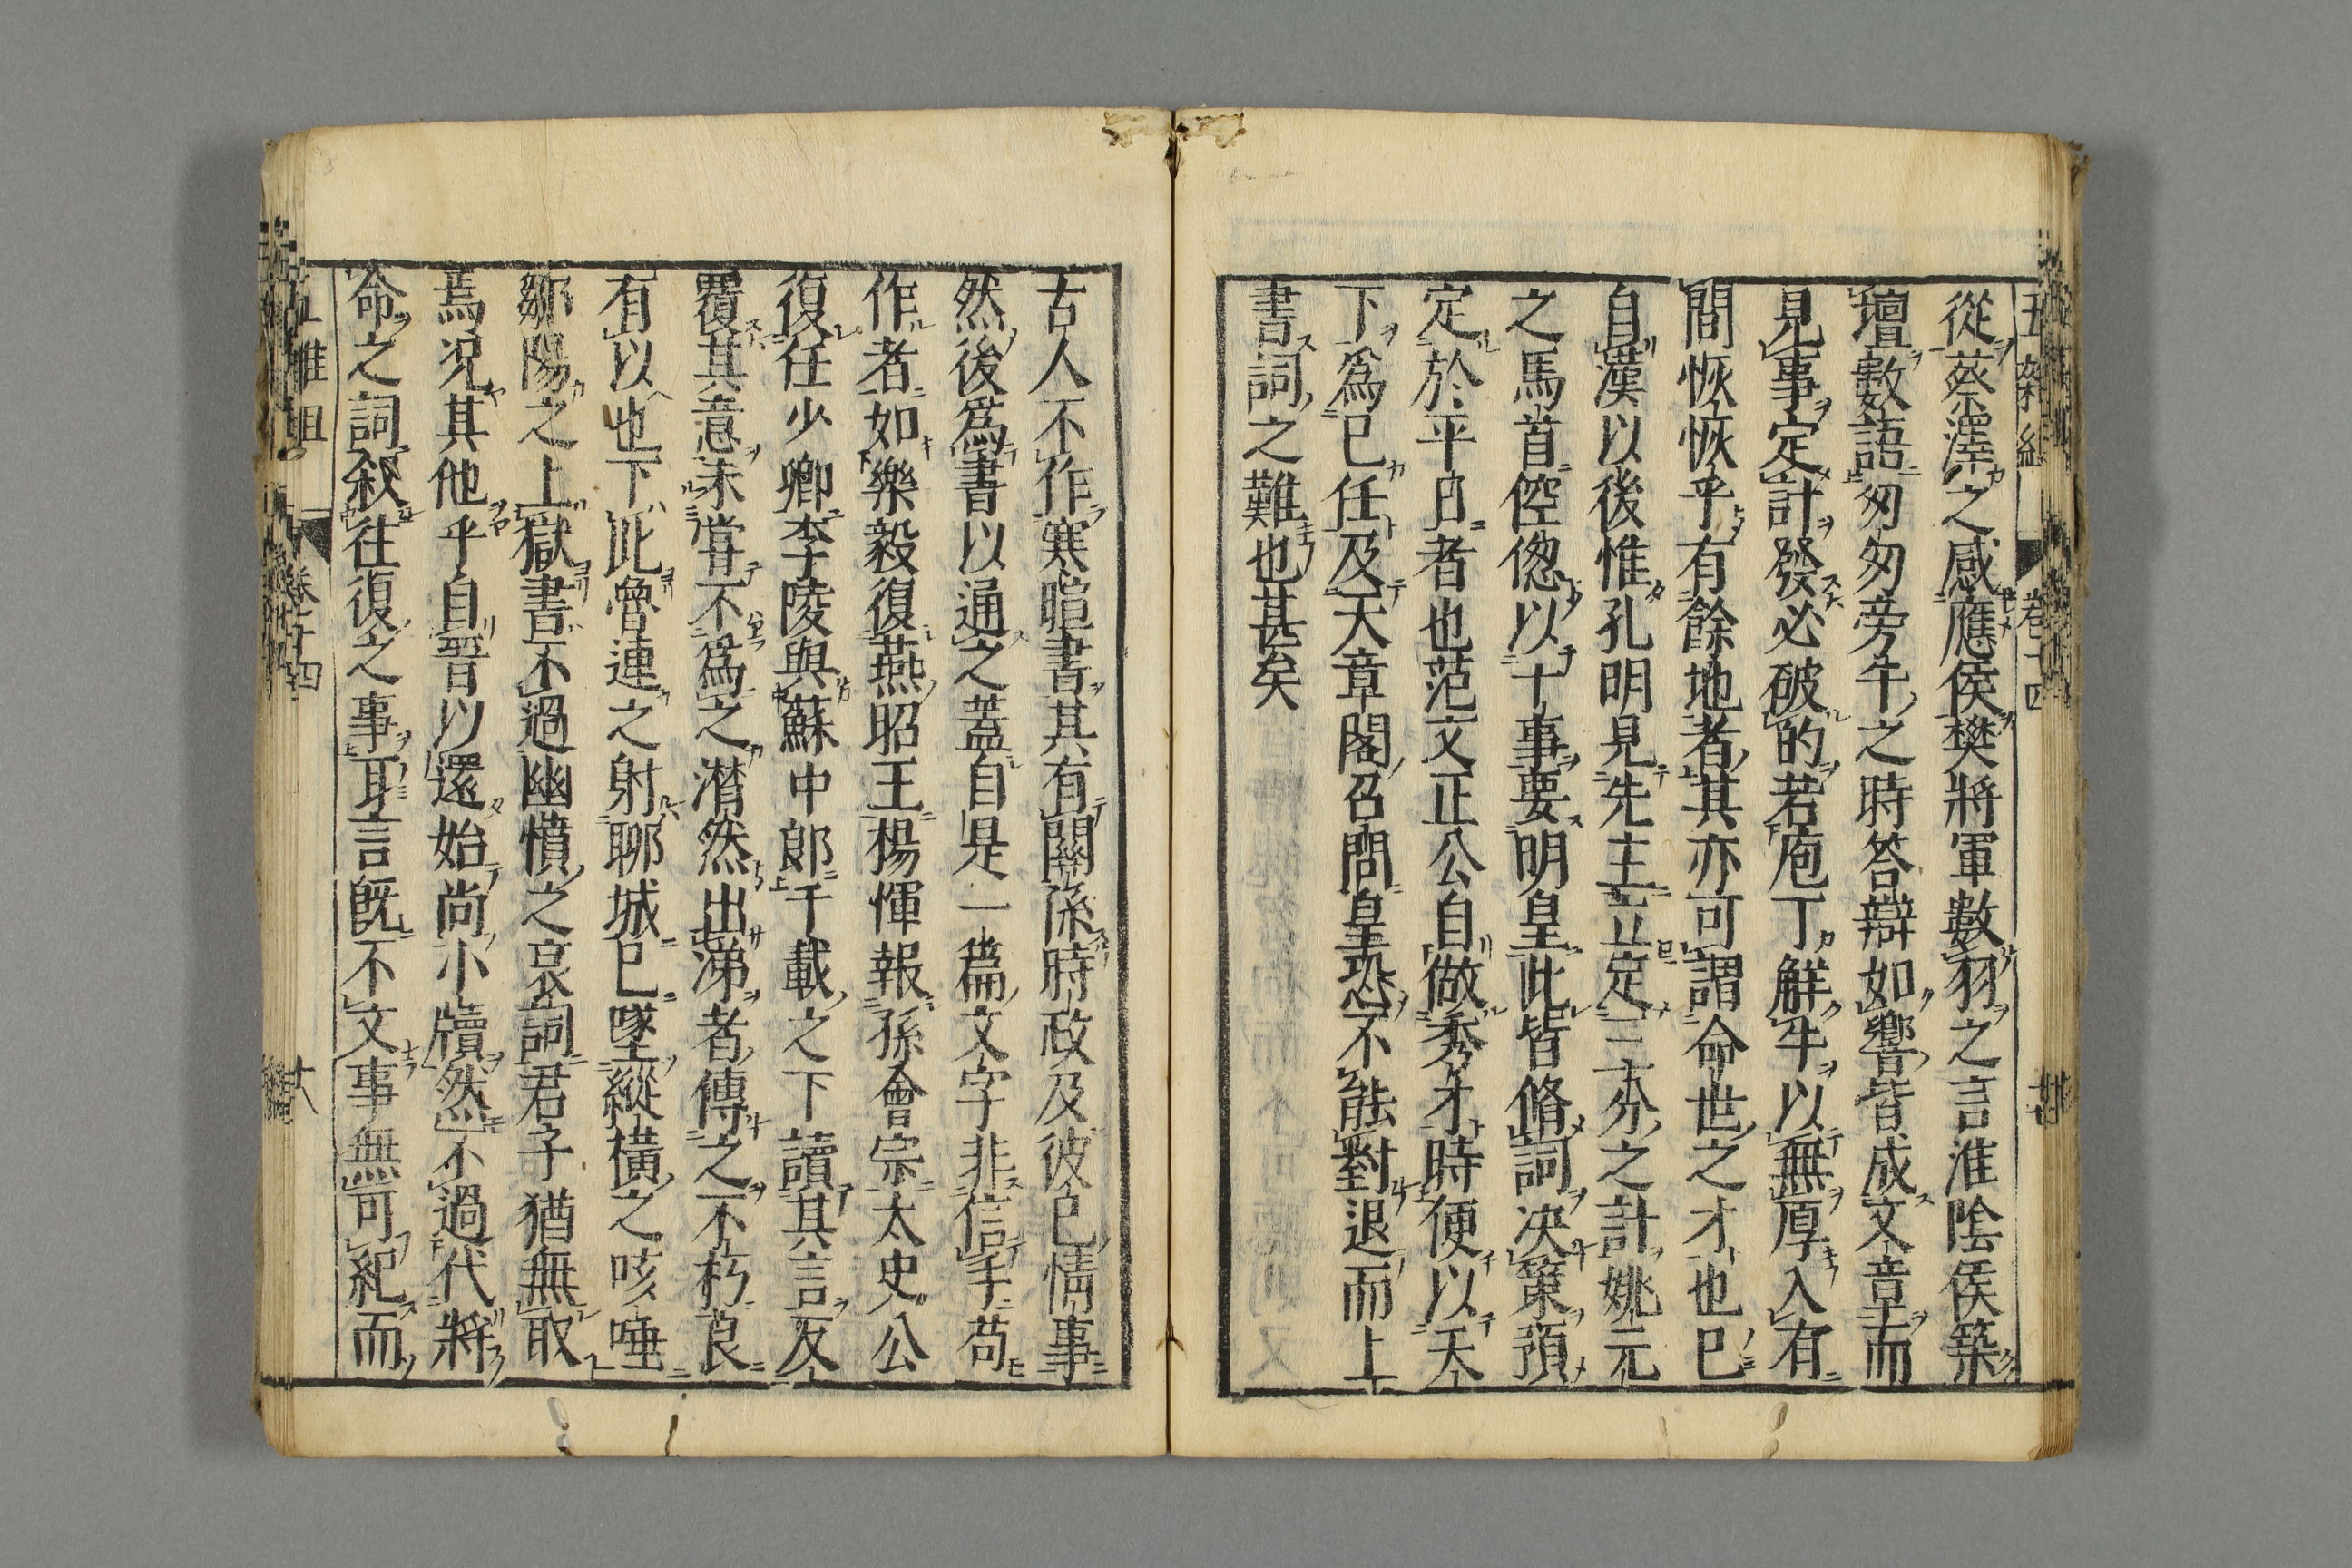 從蔡澤之感應侯樊將軍數羽之言淮陰侯築
壇數語匆匆旁午之時答辯如響皆成文章而
見事定計發必破的若庖丁解牛以無厚入有
間恢恢乎有餘地者其亦可謂命世之才也已
自漢以後惟孔明見先主立定三分之計姚元
之馬首倥偬以十事要明皇此皆脩詞决策預
定於平日者也范文正公自做秀才時便以天
下爲已任及天章閣召問皇恐不能對退而上
書詞之難也甚矣
古人不作寒暄書其有關係時政及彼已情事
然後爲書以通之蓋自是一篇文字非信手苟
作者如樂毅復燕昭王楊惲報孫會宗太史公
復任少卿李陵與蘇中郎千載之下讀其言反
覆其意未甞不爲之潸然出涕者傳之不朽良
有以也下此魯連之射聊城已墜縱橫之咳唾
鄒陽之上獄書不過幽憤之哀詞君子猶無取
焉况其他乎自晋以還始尚小牘然不過代將
命之詞叙往復之事耳言既不文事無可紀而
卷十四